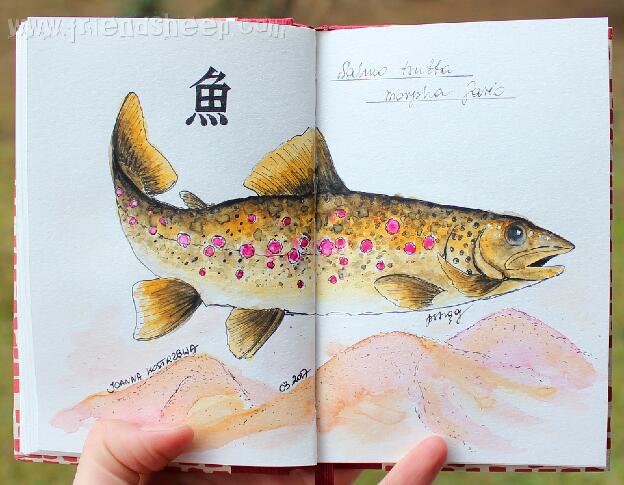 www.friendsheep.com
魚
Salmo trutta
morpha fario
pstrąg
JOANNA KOSTRZEWA
03.2017